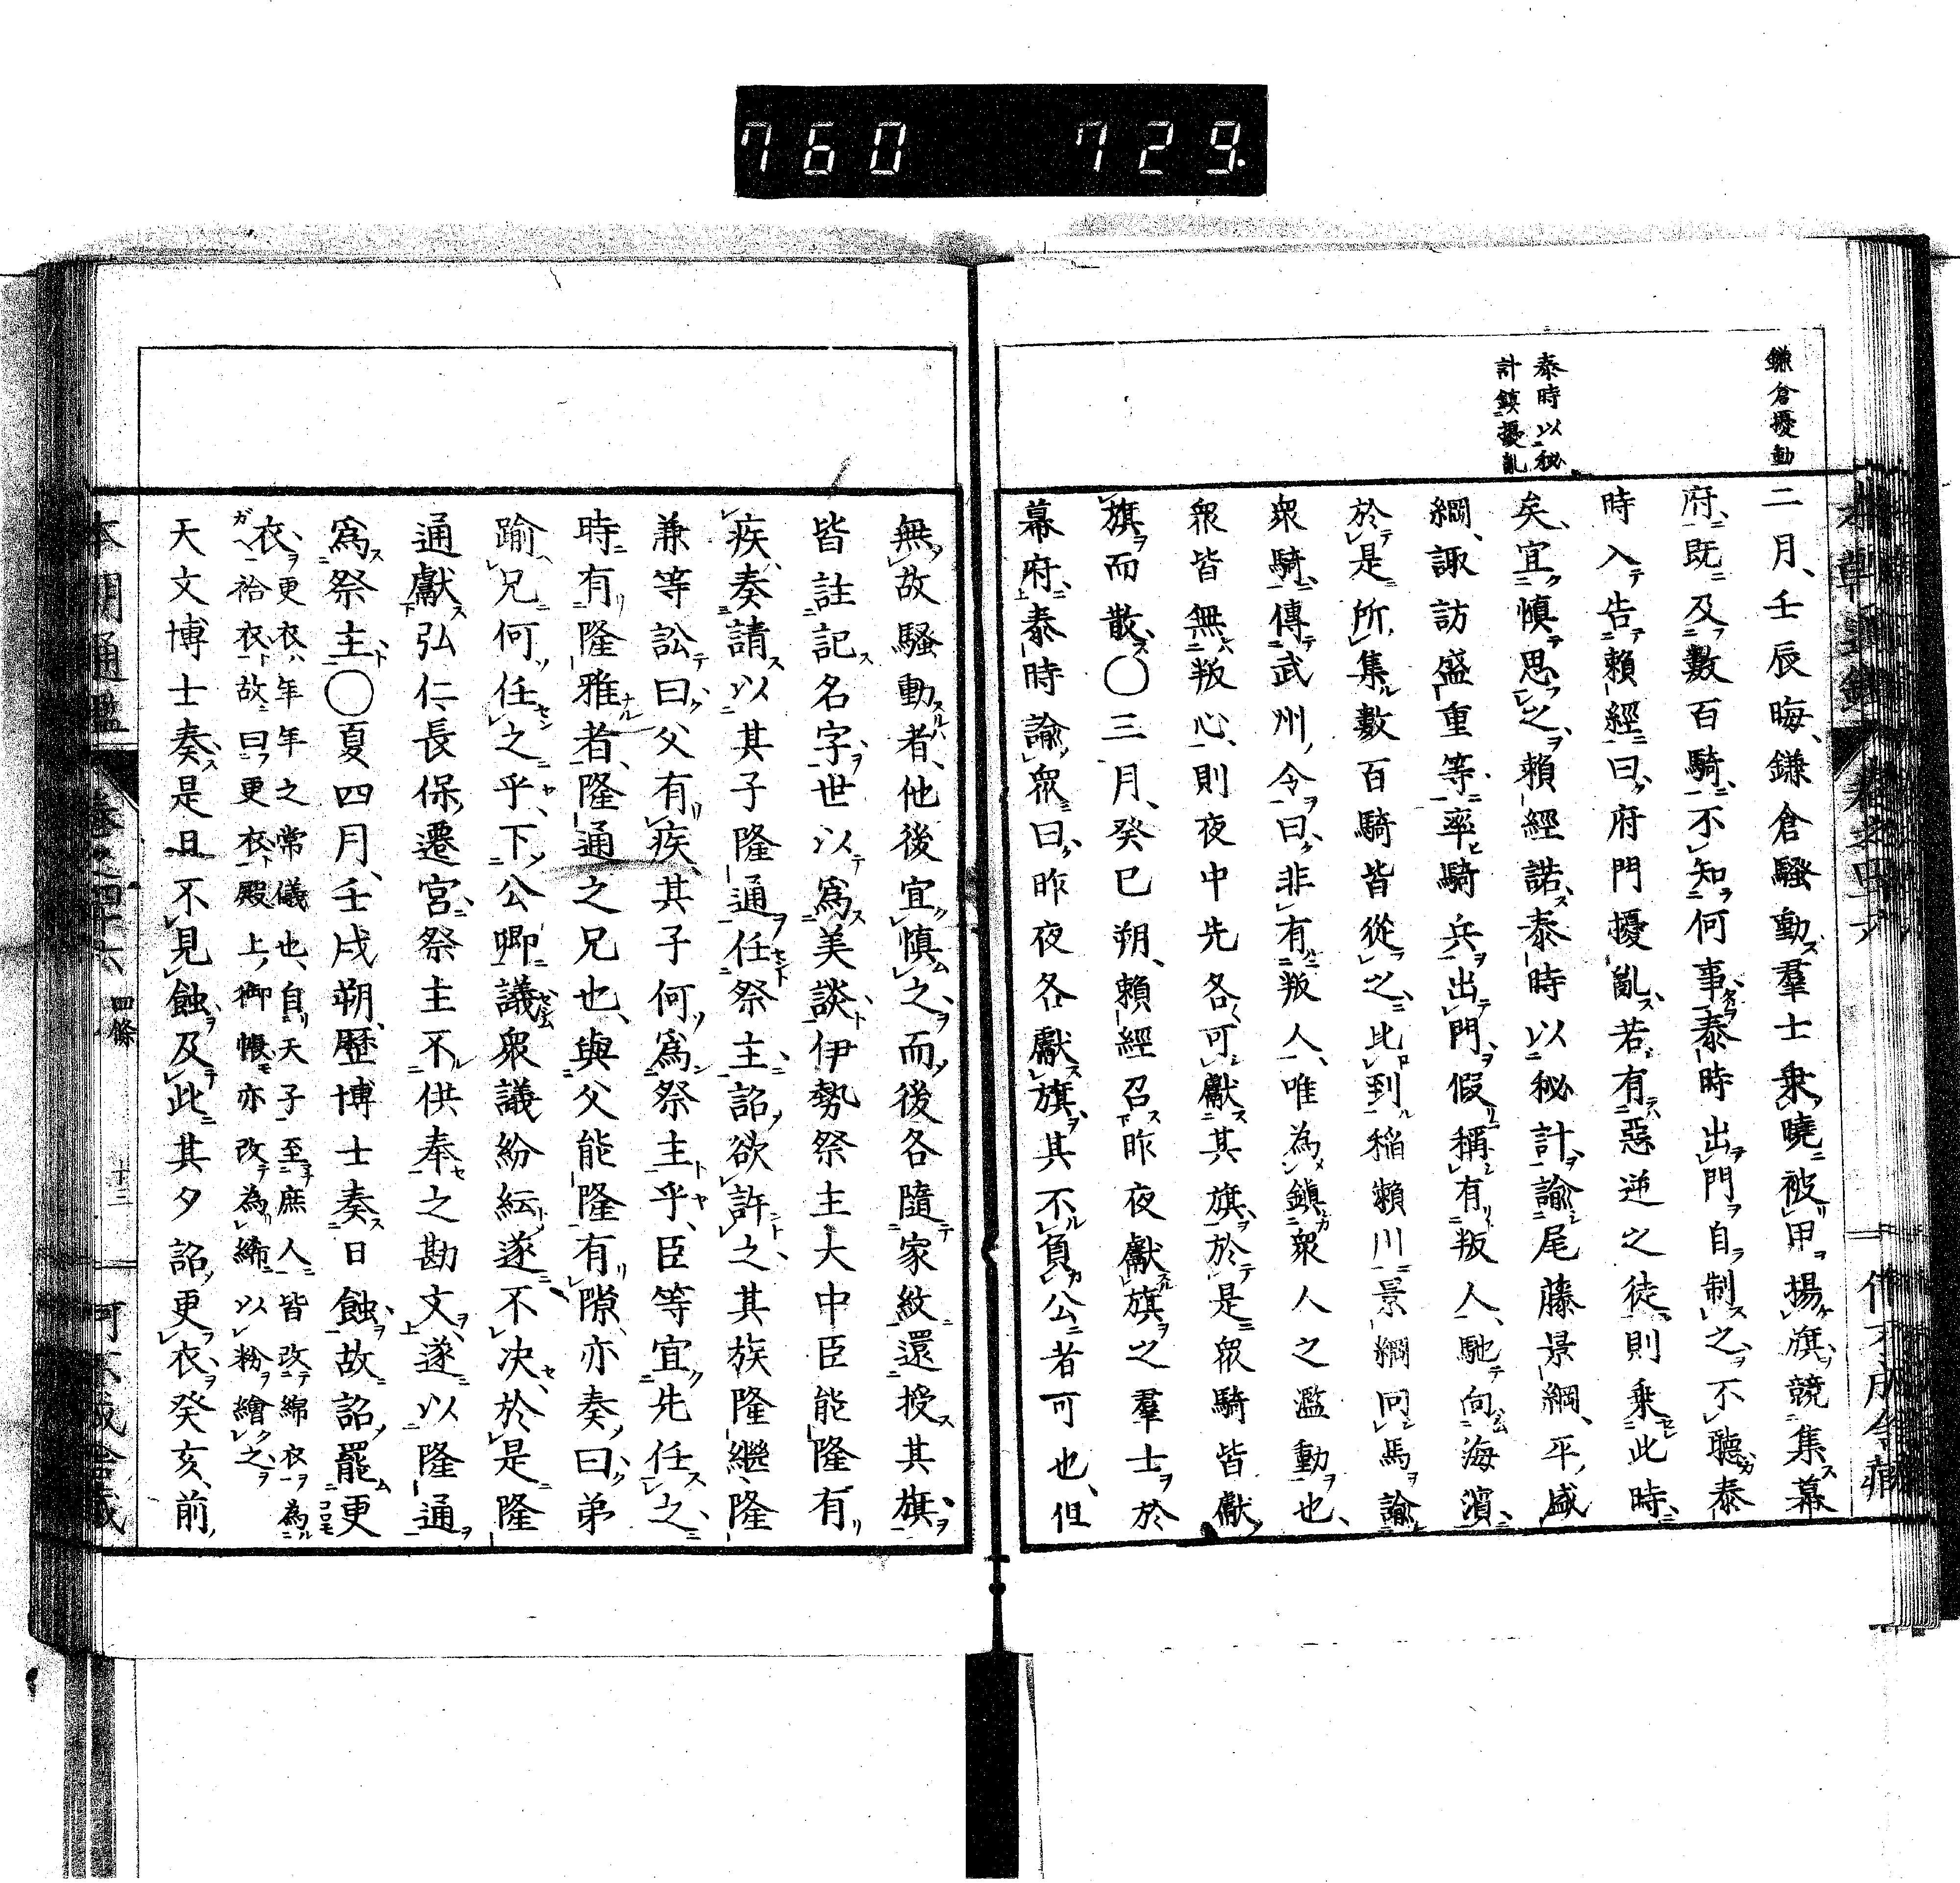 760 729.
鎌倉擾動
泰時以秘
計鎮擾亂
二月壬辰晦鎌倉騷動羣士乗曉被甲揚旗競集幕
府既及數百騎不知何事泰時出門自制之不聽泰
時入告賴經曰府門擾亂若有惡逆之徒則乗此時
矣宜慎思之賴經諾泰時以秘計諭尾藤景綱平盛
綱諏訪盛重等率騎兵出門假稱有叛人馳向海濱
於是所集數百騎皆從之比到稲瀬川景綱囘馬諭
衆騎傳武州令曰非有叛人唯為鎮衆人之濫動也
衆皆無叛心則夜中先各可獻其旗於是衆騎皆獻
旗而散○三月癸巳朔賴經召昨夜獻旗之羣士於
幕府泰時諭衆曰昨夜各獻旗其不負公者可也但
無故騷動者他後宜慎之而後各隨家紋還授其旗
皆註記名字世以爲美談伊勢祭主大中臣能隆有
疾奏請以其子隆通任祭主詔欲許之其族隆繼隆
兼等訟曰父有疾其子何爲祭主乎臣等宜先任之
時有隆雅者隆通之兄也與父能隆有隙亦奏曰弟
踰兄何任之乎下公卿議衆議紛紜遂不決於是隆
通獻弘仁長保遷宮祭主不供奉之勘文遂以隆通
爲祭主○夏四月壬戌朔歷博士奏日蝕故詔罷更
衣更衣年年之常儀也自天子至庶人皆改綿衣為
袷衣故曰更衣殿上御帳亦改為綈以粉繪之
天文博士奏是日不見蝕及此其夕詔更衣癸亥前
本朝通鑑 卷之四十六 四條 十三